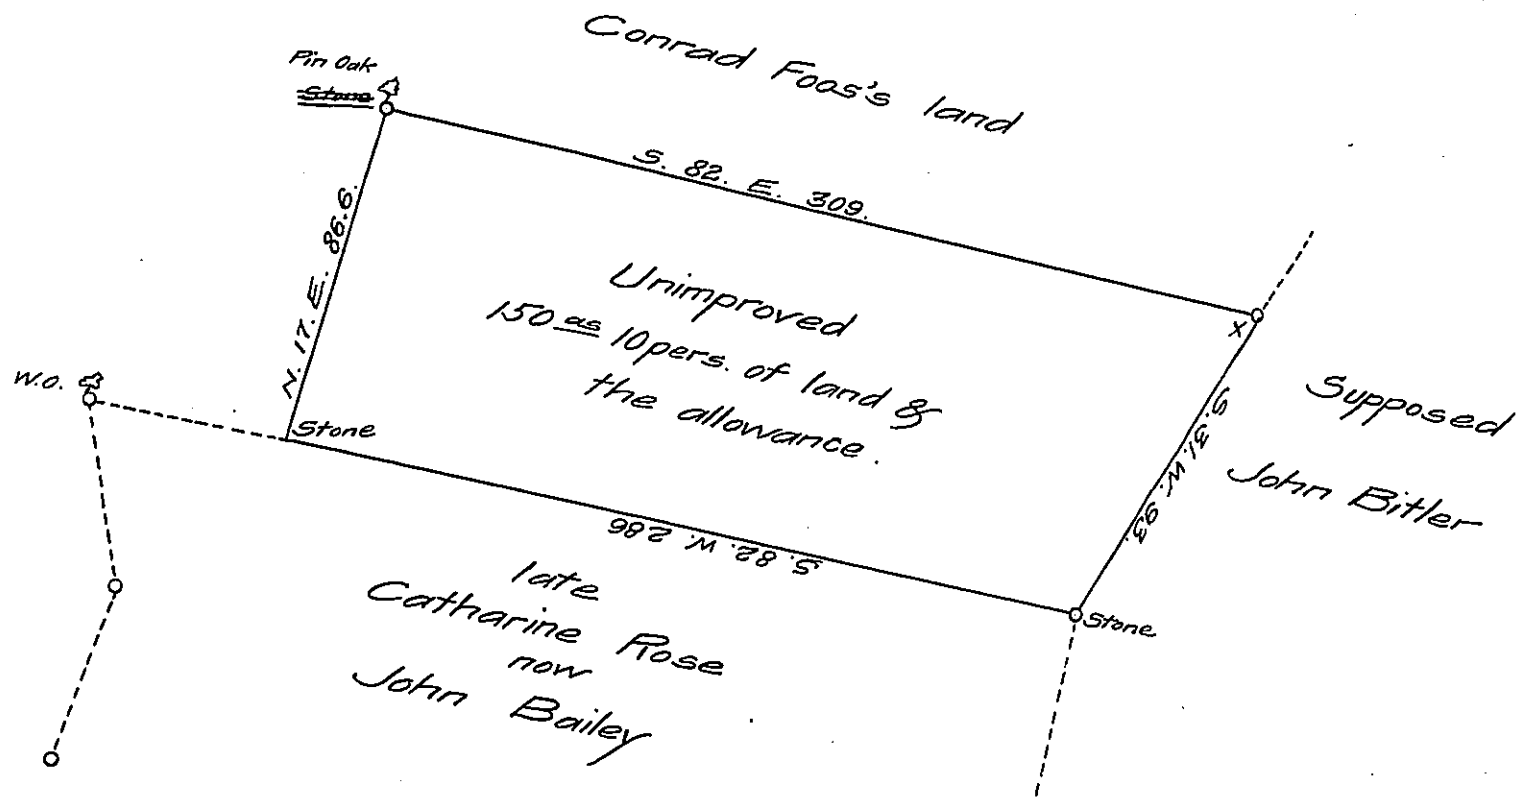 Conrad Foos's land
Pin Oak
Stone
S. 82. E. 309.
N. 17. E. 86.6.
Unimproved
150 as 10 pers. of land &
the allowance.
X
W.O.
Stone
S. 31. W. 93.
Supposed
John Bitler
S. 82. W. 286
Stone
late
Catharine Rose
now
John Bailey